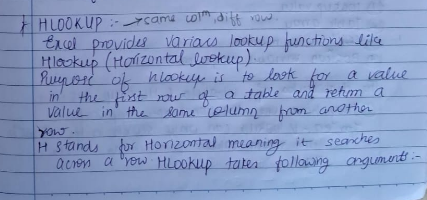 * HLOOKUP :- → same colm, diff row.
Excel provides various lookup functions like
Hlookup (Horizontal lookup)
Purpose of hlookup is to look for a value
in the first row of a table and return a
value in the same column from another
row.
H stands for Horizontal meaning it searches
across a row HLookup takes following arguments:-